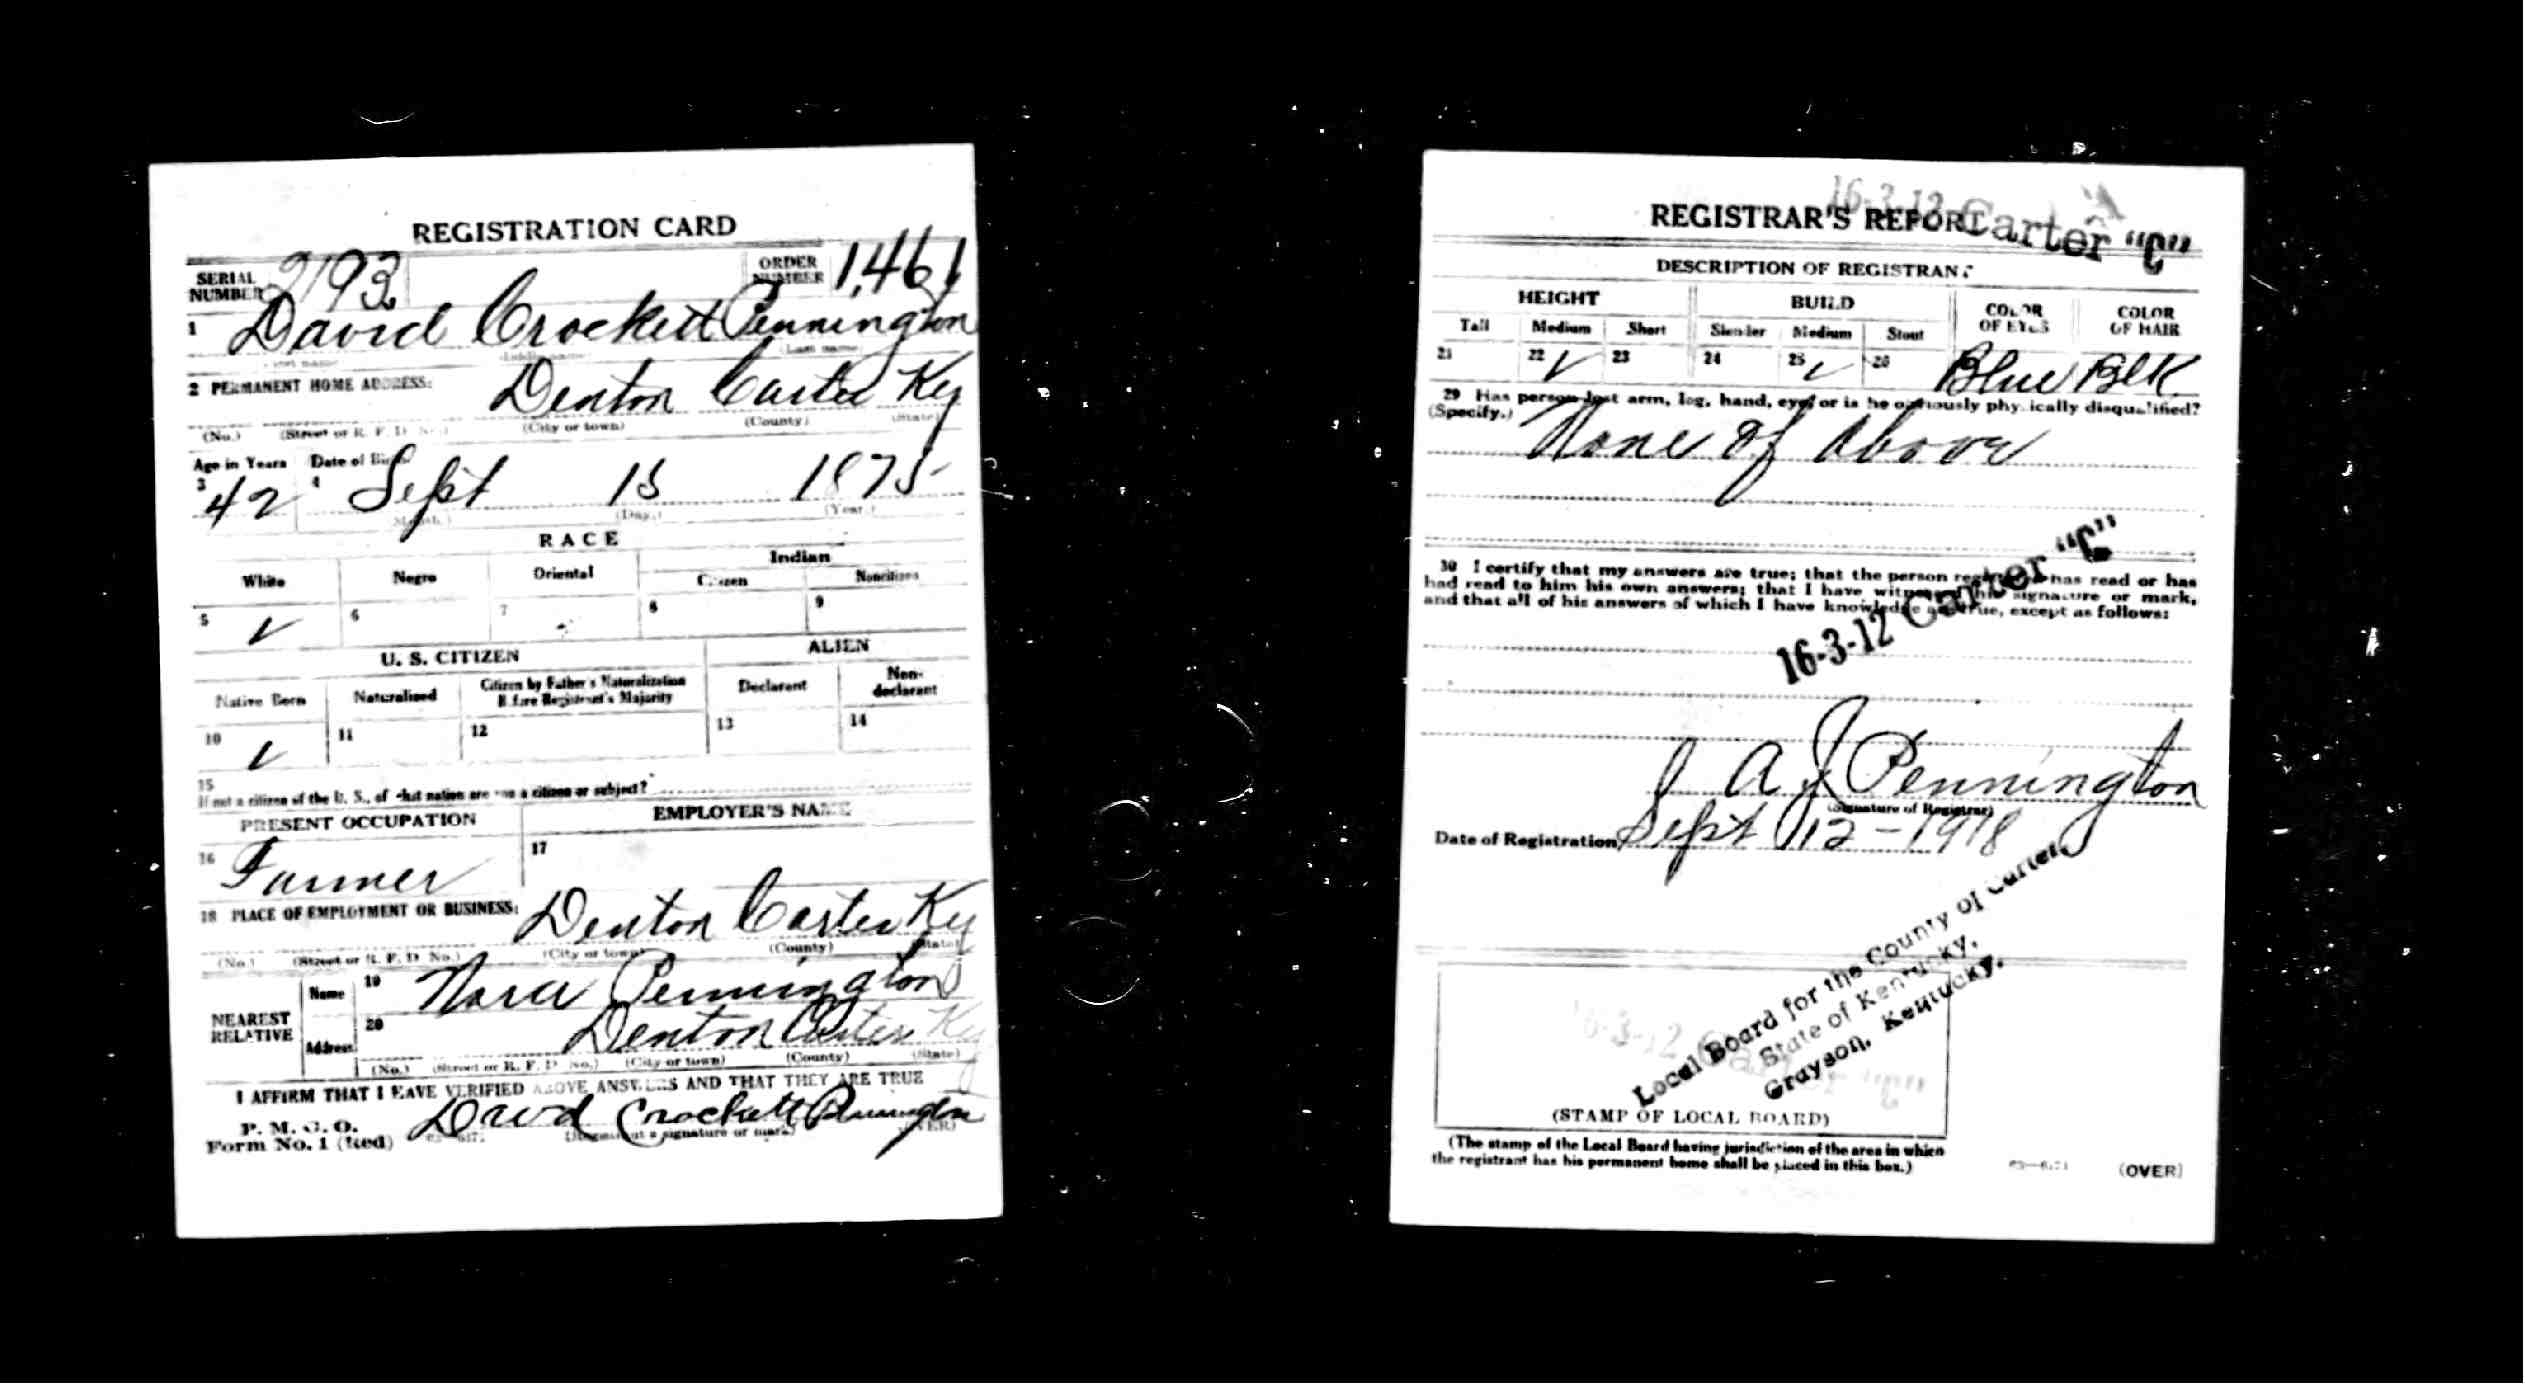 REGISTRATION CARD
SERIAL NUMBER 2193 ORDER NUMBER 1461
1 David Crockett Pennington
(Last name)
2 PERMANENT HOME ADDRESS: Denton Carter Ky
(No.) (Street or R. F. D. No.) (City or town) (County) (State)
Age in Years Date of Birth
3 42 4 Sept 15 1875
(Month.) (Day.) (Year.)
RACE
White Negro Oriental Indian
Citizen Noncitizen
5 ✓ 6 7 8 9
U. S. CITIZEN ALIEN
Native Born Naturalized Citizen by Father's Naturalization Before Registrant's Majority Declarant Non-declarant
10 ✓ 11 12 13 14
15
If not a citizen of the U. S., of what nation are you a citizen or subject?
PRESENT OCCUPATION EMPLOYER'S NAME
16 Farmer 17
18 PLACE OF EMPLOYMENT OR BUSINESS: Denton Carter Ky
(No.) (Street or R. F. D. No.) (City or town) (County) (State)
NEAREST RELATIVE Name 19 Nora Pennington
Address 20 Denton Carter Ky
(No.) (Street or R. F. D. No.) (City or town) (County) (State)
I AFFIRM THAT I HAVE VERIFIED ABOVE ANSWERS AND THAT THEY ARE TRUE
P. M. G. O.
Form No. 1 (Red) David Crockett Pennington
(Registrant's signature or mark) (OVER)
16-3-12 Carter "C"
REGISTRAR'S REPORT
DESCRIPTION OF REGISTRANT
HEIGHT BUILD COLOR OF EYES COLOR OF HAIR
Tall Medium Short Slender Medium Stout
21 22 ✓ 23 24 25 ✓ 26 Blue Blk
29 Has person lost arm, leg, hand, eye, or is he obviously physically disqualified?
(Specify.) None of Above
30 I certify that my answers are true; that the person registered has read or has
had read to him his own answers; that I have witnessed his signature or mark,
and that all of his answers of which I have knowledge are true, except as follows:
16-3-12 Carter "C"
A J Pennington
(Signature of Registrar)
Date of Registration Sept 12-1918
Local Board for the County of Carter,
State of Kentucky,
Grayson, Kentucky.
16-3-12 Carter "C"
(STAMP OF LOCAL BOARD)
(The stamp of the Local Board having jurisdiction of the area in which
the registrant has his permanent home shall be placed in this box.)
(OVER)